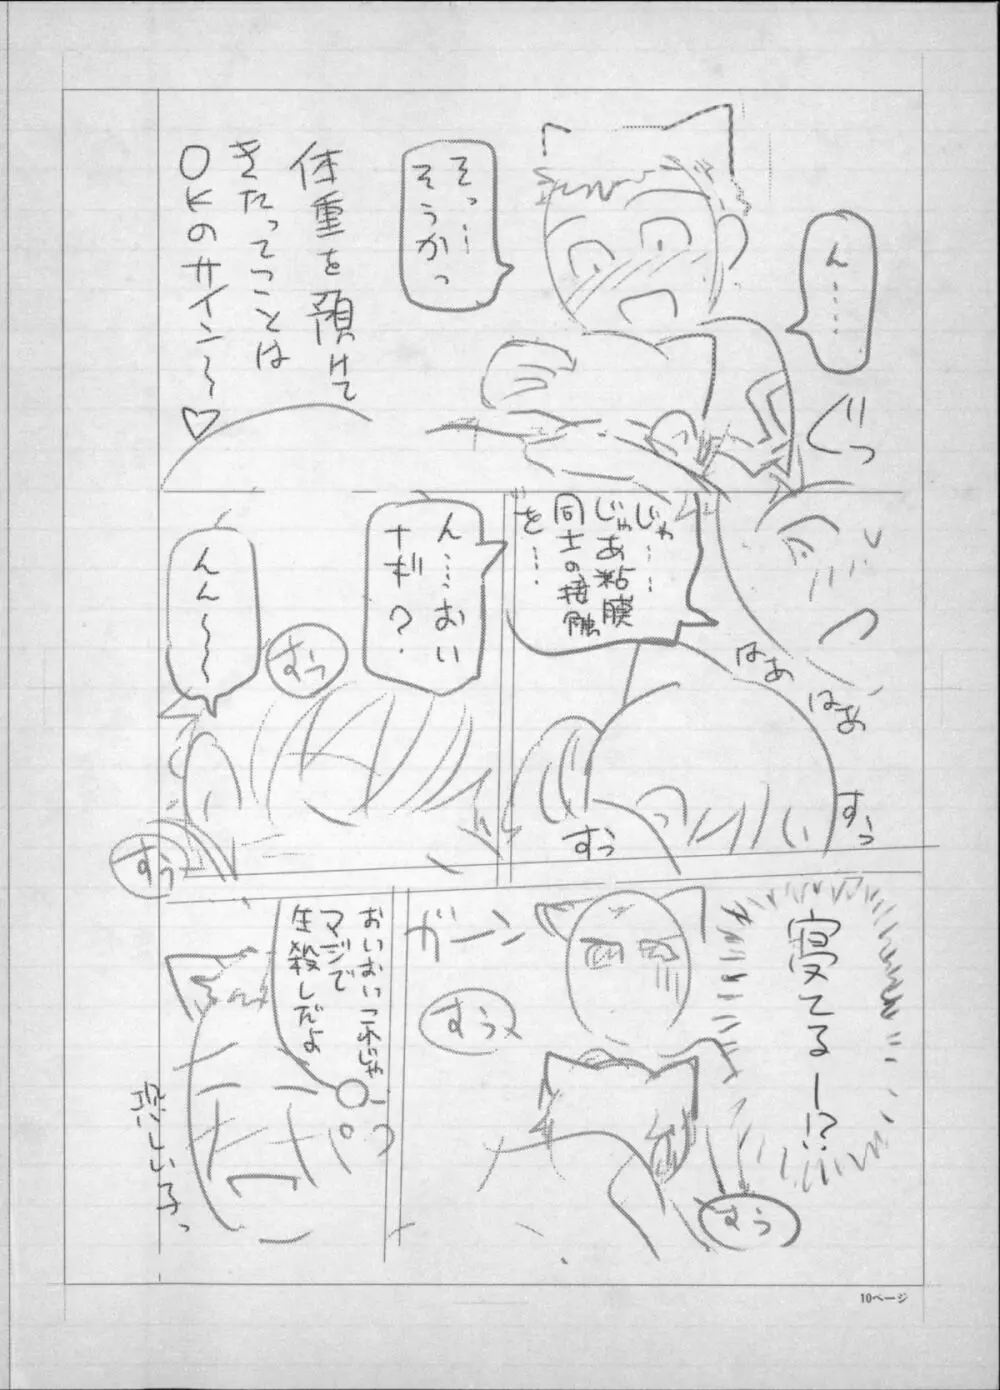 ん……
ぐっ
そっ…
そうかっ
体重を預けて
きたってことは
OKのサイン〜♡
じゃ……
じゃあ粘膜
同士の接触
を…
はあ
はあ
すぅ
すぅ
ん…おい
ナギ?
すぅ
んん〜〜
すぅ
寝てるー!?
すぅ
ガーン
すぅ
おいおいこれじゃ
マジで
生殺しだよ
10ページ